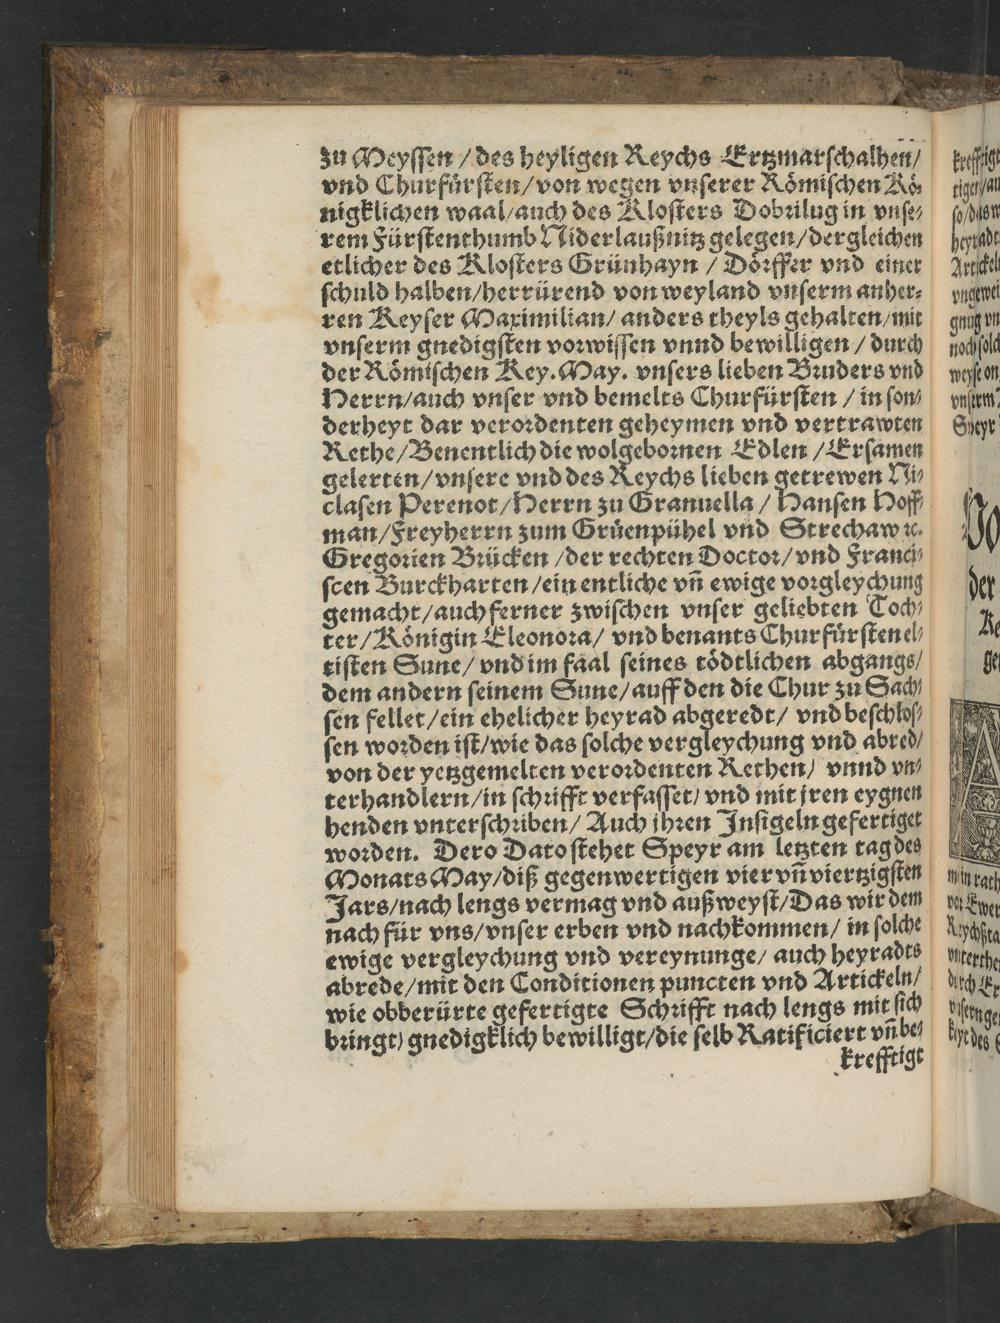 zu Meyssen / des heyligen Reychs Ertzmarschalhen/
vnd Churfürsten/von wegen vnserer Römischen Kö⸗
nigklichen waal/auch des Klosters Dobrilug in vnse⸗
rem Fürstenthumb Niderlaußnitz gelegen/dergleichen
etlicher des Klosters Grünhayn / Dörffer vnd einer
schuld halben/herrürend von weyland vnserm anher⸗
ren Keyser Maximilian/ anders theyls gehalten/mit
vnserm gnedigsten vorwissen vnnd bewilligen / durch
der Römischen Key. May. vnsers lieben Bruders vnd
Herrn/auch vnser vnd bemelts Churfürsten / in son⸗
derheyt dar verordenten geheymen vnd vertrawten
Rethe/Benentlich die wolgebornen Edlen /Ersamen
gelerten/vnsere vnd des Reychs lieben getrewen Ni⸗
clasen Perenot/Herrn zu Granuella / Hansen Hoff⸗
man/Freyherrn zum Grüenpühel vnd Strechaw ꝛc.
Gregorien Brücken /der rechten Doctor/vnd Franci⸗
scen Burckharten/ein entliche vn̄ ewige vorgleychung
gemacht/auch ferner zwischen vnser geliebten Toch⸗
ter/Königin Eleonora/ vnd benants Churfürsten el⸗
tisten Sune/vnd im faal seines tödtlichen abgangs/
dem andern seinem Sune/auff den die Chur zu Sach⸗
sen fellet/ein ehelicher heyrad abgeredt/ vnd beschlos⸗
sen worden ist/wie das solche vergleychung vnd abred/
von der yetzgemelten verordenten Rethen/ vnnd vn⸗
terhandlern/in schrifft verfasset/ vnd mit jren eygnen
henden vnterschriben/ Auch jhren Insigeln gefertiget
worden. Dero Dato stehet Speyr am letzten tag des
Monats May/diß gegenwertigen vier vn̄ viertzigsten
Jars/nach lengs vermag vnd außweyst/Das wir dem
nach für vns/vnser erben vnd nachkommen/ in solche
ewige vergleychung vnd vereynunge/ auch heyradts
abrede/mit den Conditionen puncten vnd Artickeln/
wie obberürte gefertigte Schrifft nach lengs mit sich
bringt/ gnedigklich bewilligt/die selb Ratificiert vn̄ be⸗
krefftigt